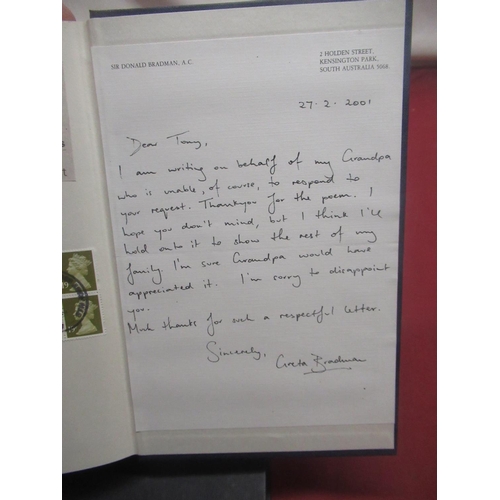 SIR DONALD BRADMAN, A.C.
2 HOLDEN STREET,
KENSINGTON PARK,
SOUTH AUSTRALIA 5068
27.2.2001
Dear Tony,
I am writing on behalf of my Grandpa
who is unable, of course, to respond to
your request. Thankyou for the poem. I
hope you don't mind, but I think I'll
hold onto it to show the rest of my
family. I'm sure Grandpa would have
appreciated it. I'm sorry to disappoint
you.
Much thanks for such a respectful letter.
Sincerely,
Greta Bradman